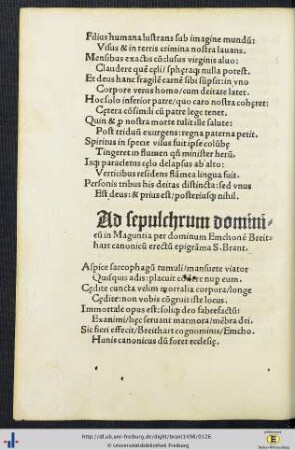 Filius humana lustrans sub imagine mundū:
Visus & in terris crimina nostra lauans.
Mensibus exactis cōclusus virginis aluo:
Claudere quē cęli/ sphęraq; nulla potest.
Et deus hanc fragilē carnē sibi sūpsit: in vno
Corpore verus homo/ cum deitate latet.
Hoc solo inferior patre/ quo caro nostra cohęret:
Cętera cōsimili cū patre lege tenet.
Quin & p nostra morte tulit ille salute:
Post triduū exurgens: regna paterna petit.
Spiritus in specie visus fuit ipse colūbę
Tingeret in flumen qn̄ minister herū.
Isq; paracletus cęlo delapsus ab alto:
Verticibus residens flāmea lingua fuit.
Personis tribus his deitas distincta: sed vnus
Est deus: & prius est/ posteriusq; nihil.
Ad sepulchrum domini=
cū in Maguntia per dominum Emchonē Breit=
hart canonicū erectū epigrāma S. Brant.
Aspice sarcophagū tumuli/ mansuete viator
Quisquis adis: placuit
Cędite cuncta velim mortalia corpora/ longe
Cędite: non vobis cōgruit iste locus.
Immortale opus est: soliq; deo fabrefactū:
Exanimi/ hęc seruant marmora/ mēbra dei.
Sic fieri effecit/ Breithart cognominis/ Emcho.
Hunis canonicus dū foret ecclesię.
http://dl.ub.uni-freiburg.de/diglit/brant1498/0126
© Universitätsbibliothek Freiburg